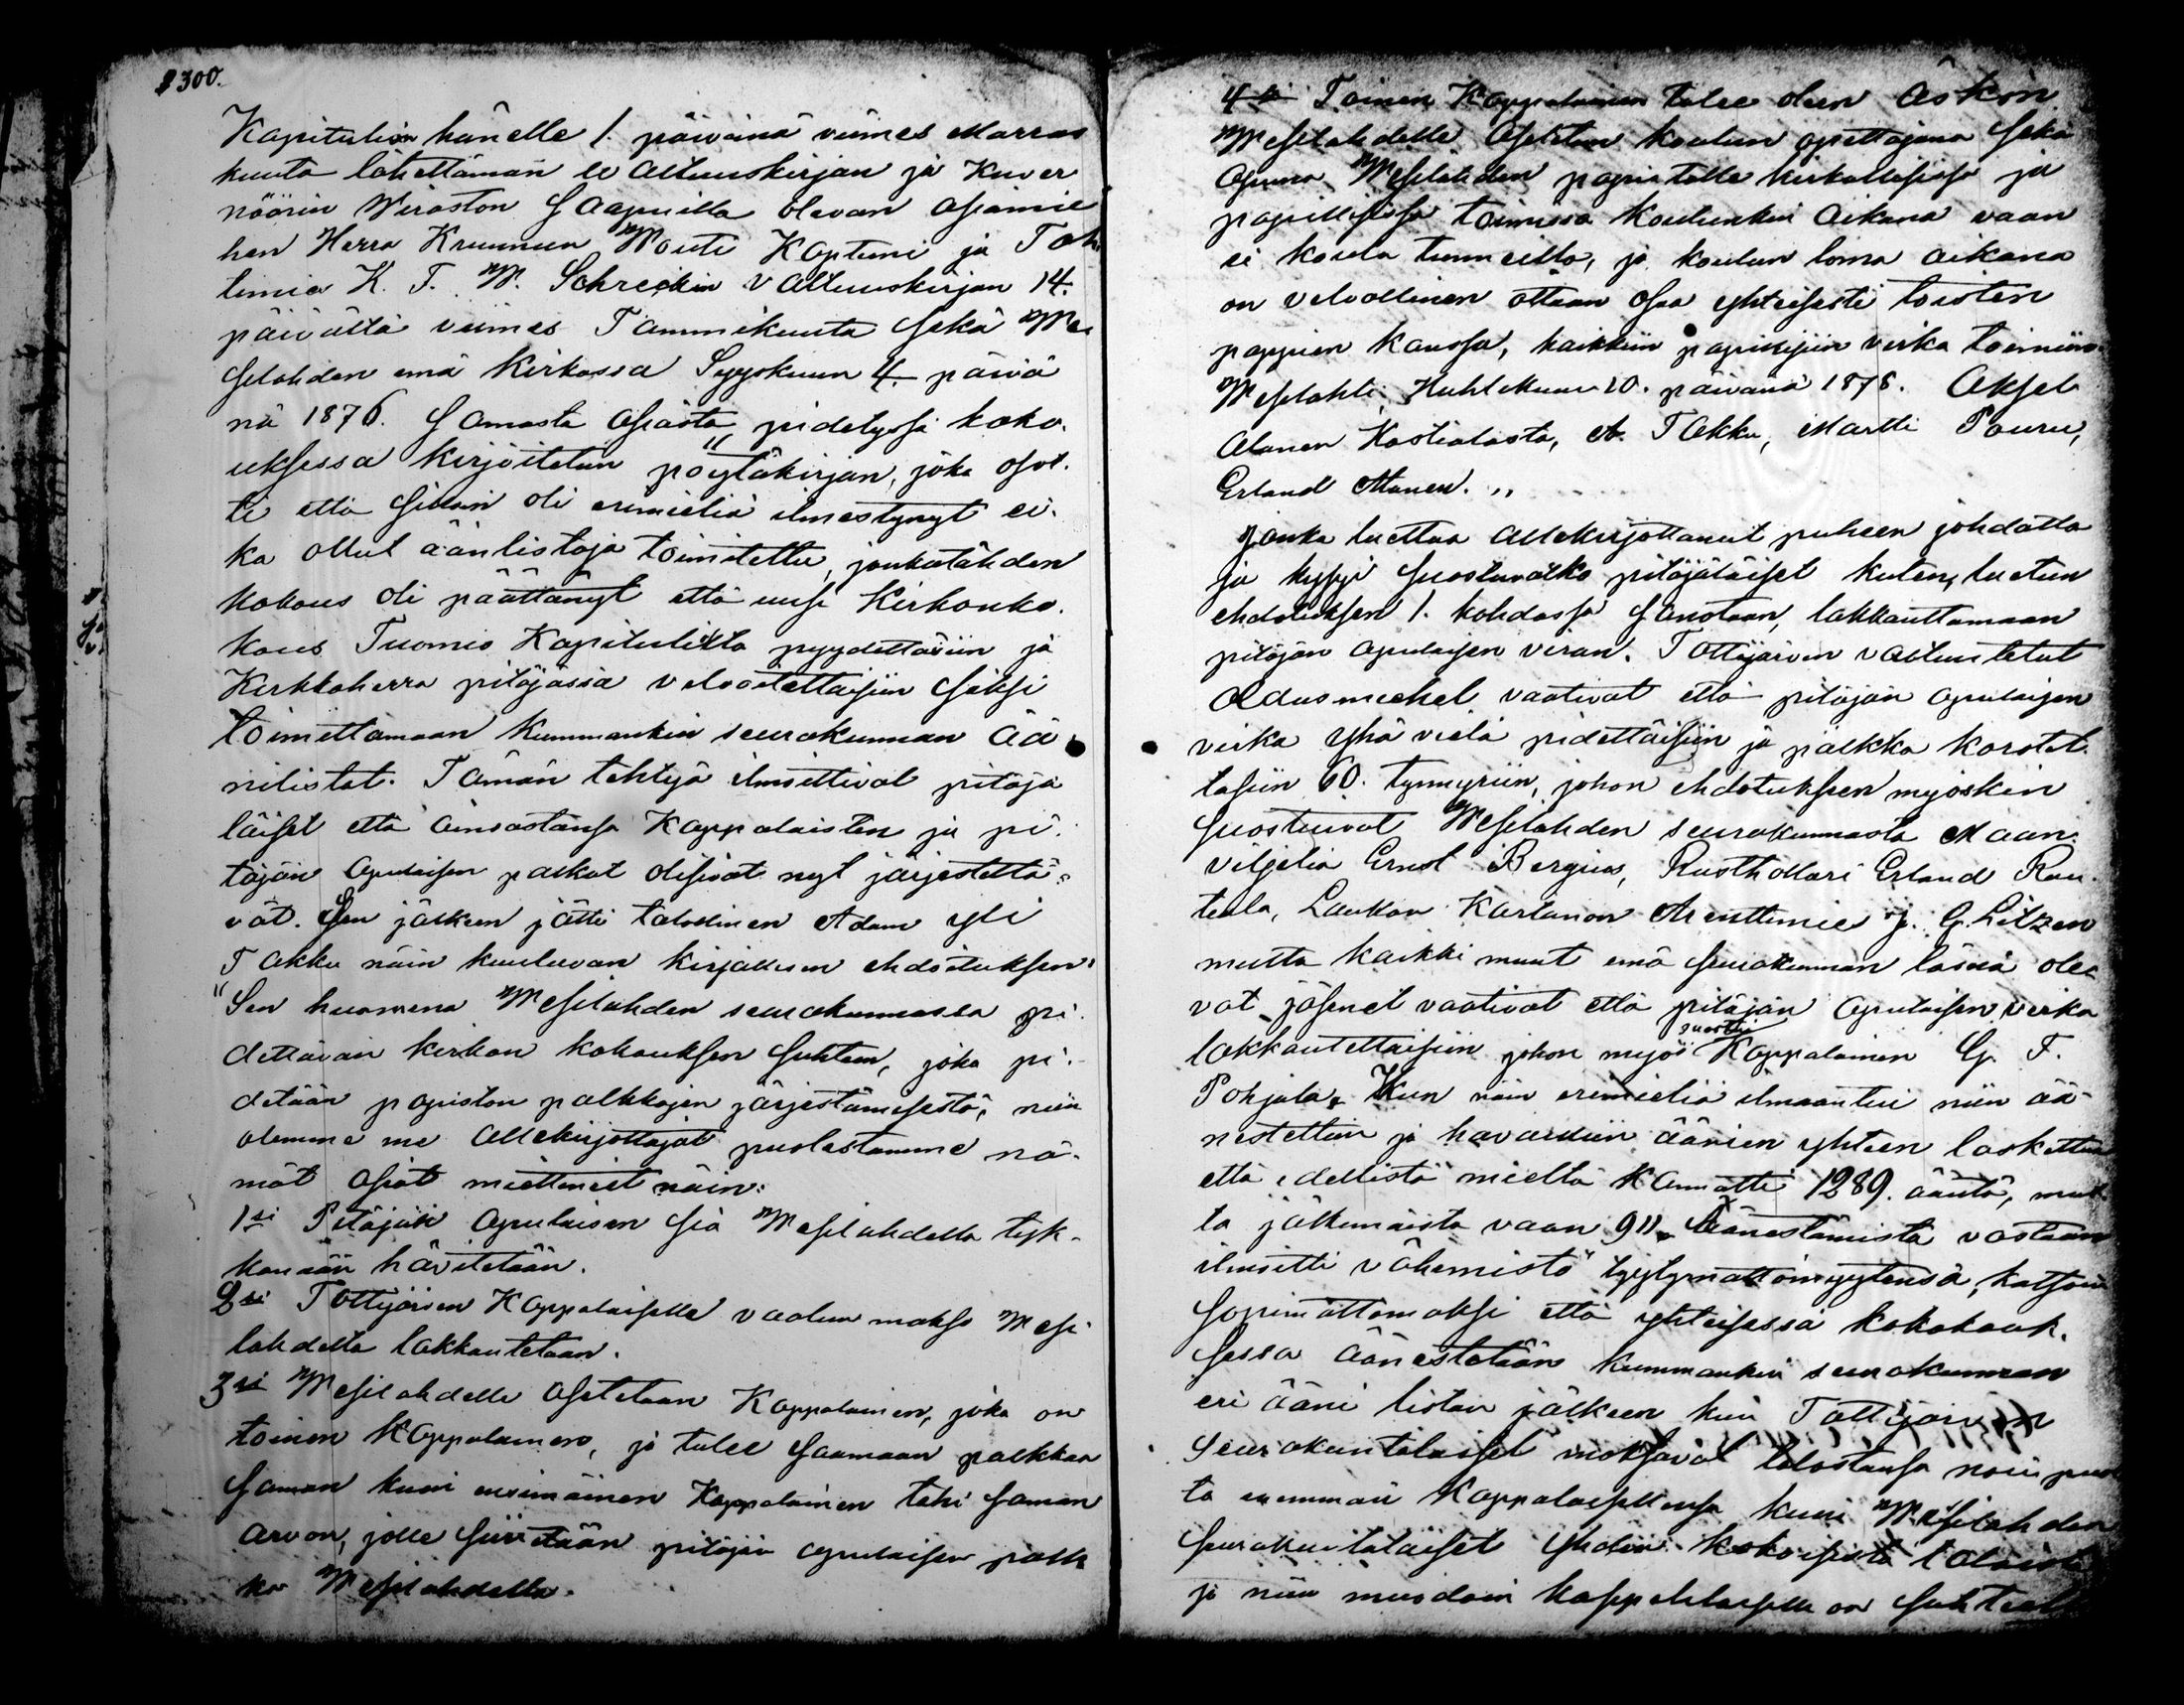 300.
Kapitulin hänelle 1. päivänä viimes Marras
kuuta lähettämän valtuuskirjan ja Kuver
nöörin Wiraston Saapuilla olevan asiamie
hen Herra Kruunun Wouti Kapteni ja
K. T. W. Schreckin Valtuuskirjan 14.
päivältä viimes Tammikuuta sekä We
silahden emä Kirkossa Syyskuun 4. päivä
nä 1876. Samasta asiasta pidetyssä koko.
uksessa kirjoitetun pöytäkirjan, joka osot.
ti että silloin oli erimieliä ilmestynyt ei.
kä ollut äänlistoja toimitettu, jonkatähden
kokous oli päättänyt että uusi Kirkonko.
kous Tuomio Kapitulilta pyydettäisiin ja
Kirkkoherra pitäjässä velvoitettaisiin siksi
toimittamaan kummankin seurakunnan ää
nilistat. Tämän tehtyä ilmoittivat pitäjä
läiset että ainoastansa Kappalaisten ja pi.
täjän apulaisen palkat olisivat nyt järjestettä-
vät. Sen jälkeen jätti talollinen Adam Yli
Takku näin kuuluvan kirjallisen ehdoituksen:
"Sen huomena Wesilahden seurakunnassa pi.
dettävän kirkon kokouksen suhteen, joka pi.
detään papiston palkkojen järjestämisestä, niin
olemme me allekirjottajat puolestamme nä-
mät asiat miettineet näin:
1si Pitäjän apulaisen sia Wesilahdella tyk-
känään hävitetään.
2si Tottijärven Kappalaiselle vaalun makso Wesi
lahdelta lakkautetaan.
3si Wesilahdelle asetetaan Kappalainen, joka on
toinen Kappalainen, ja tulee saamaan palkkaa
saman kuin ensimäinen Kappalainen tahi saman
arvon, jolle siirretään pitäjän apulaisen palk
ka Wesilahdella.
4si Toinen Kappalainen tulee oleen äskön
Wesilahdelle asetetun koulun opettajana sekä
apuna Wesilahden papistolle kirkollisissa ja
papillisissa toimissa koulunkin aikana vaan
ei koulu tunneilla, ja koulun loma aikana
on velvollinen ottaan osaa yhteisesti toisten
pappien kanssa, kaikkiin papillisiin virka toimiin.
Wesilahti Huhtikuun 10. päivänä 1878. Aksel
Alanen Kostialasta, A. Takku, Martti Pouru,
Erland Manen. "
Jonka luettua allekirjottanut puheen johdatta
ja kysyi suostuvatko pitäjäläiset kuten luetun
ehdotuksen 1. kohdassa sanotaan, lakkauttamaan
pitäjän apulaisen viran. Tottijärven valtuutetut
Edusmiehet vaativat että pitäjän apulaisen
virka yhä vielä pidettäisiin ja palkka korotet.
taisiin 60. tynnyriin, johon ehdotukseen myöskin
suostuivat Wesilahden seurakunnasta Maan.
viljeliä Ernst Bergius, Rusthollari Erland Rau.
tiala, Laukon Kartanon Arenttimies J. G. Litzen
mutta kaikki muut emä seurakunnan läsnä ole
vat jäsenet vaativat että pitäjän apulaisen virka
lakkautettaisiin johon myös suostui Kappalainen G. F.
Pohjala. Kun näin erimieliä ilmaantui niin ää-
nestettiin ja havaittiin äänien yhteen laskettua
että edellistä mieltä kannatti 1289. ääntä, mut
ta jälkimäistä vaan 911. Äänestämistä vastaan
ilmoitti vähemistö tyytymättömyytensä, katsoen
sopimattomaksi että yhteisessä kokokouk.
sessa äänestetään kummankin seurakunnan
eri ääni listan jälkeen kuin Tottijärven
seurakuntalaiset maksavat talostansa noin puol
ta enemmän Kappalaisellensa kuin Wesilahden
seurakuntalaiset yhdän kokoisista taloista
ja niin muodoin kappalaiselle on suhteel